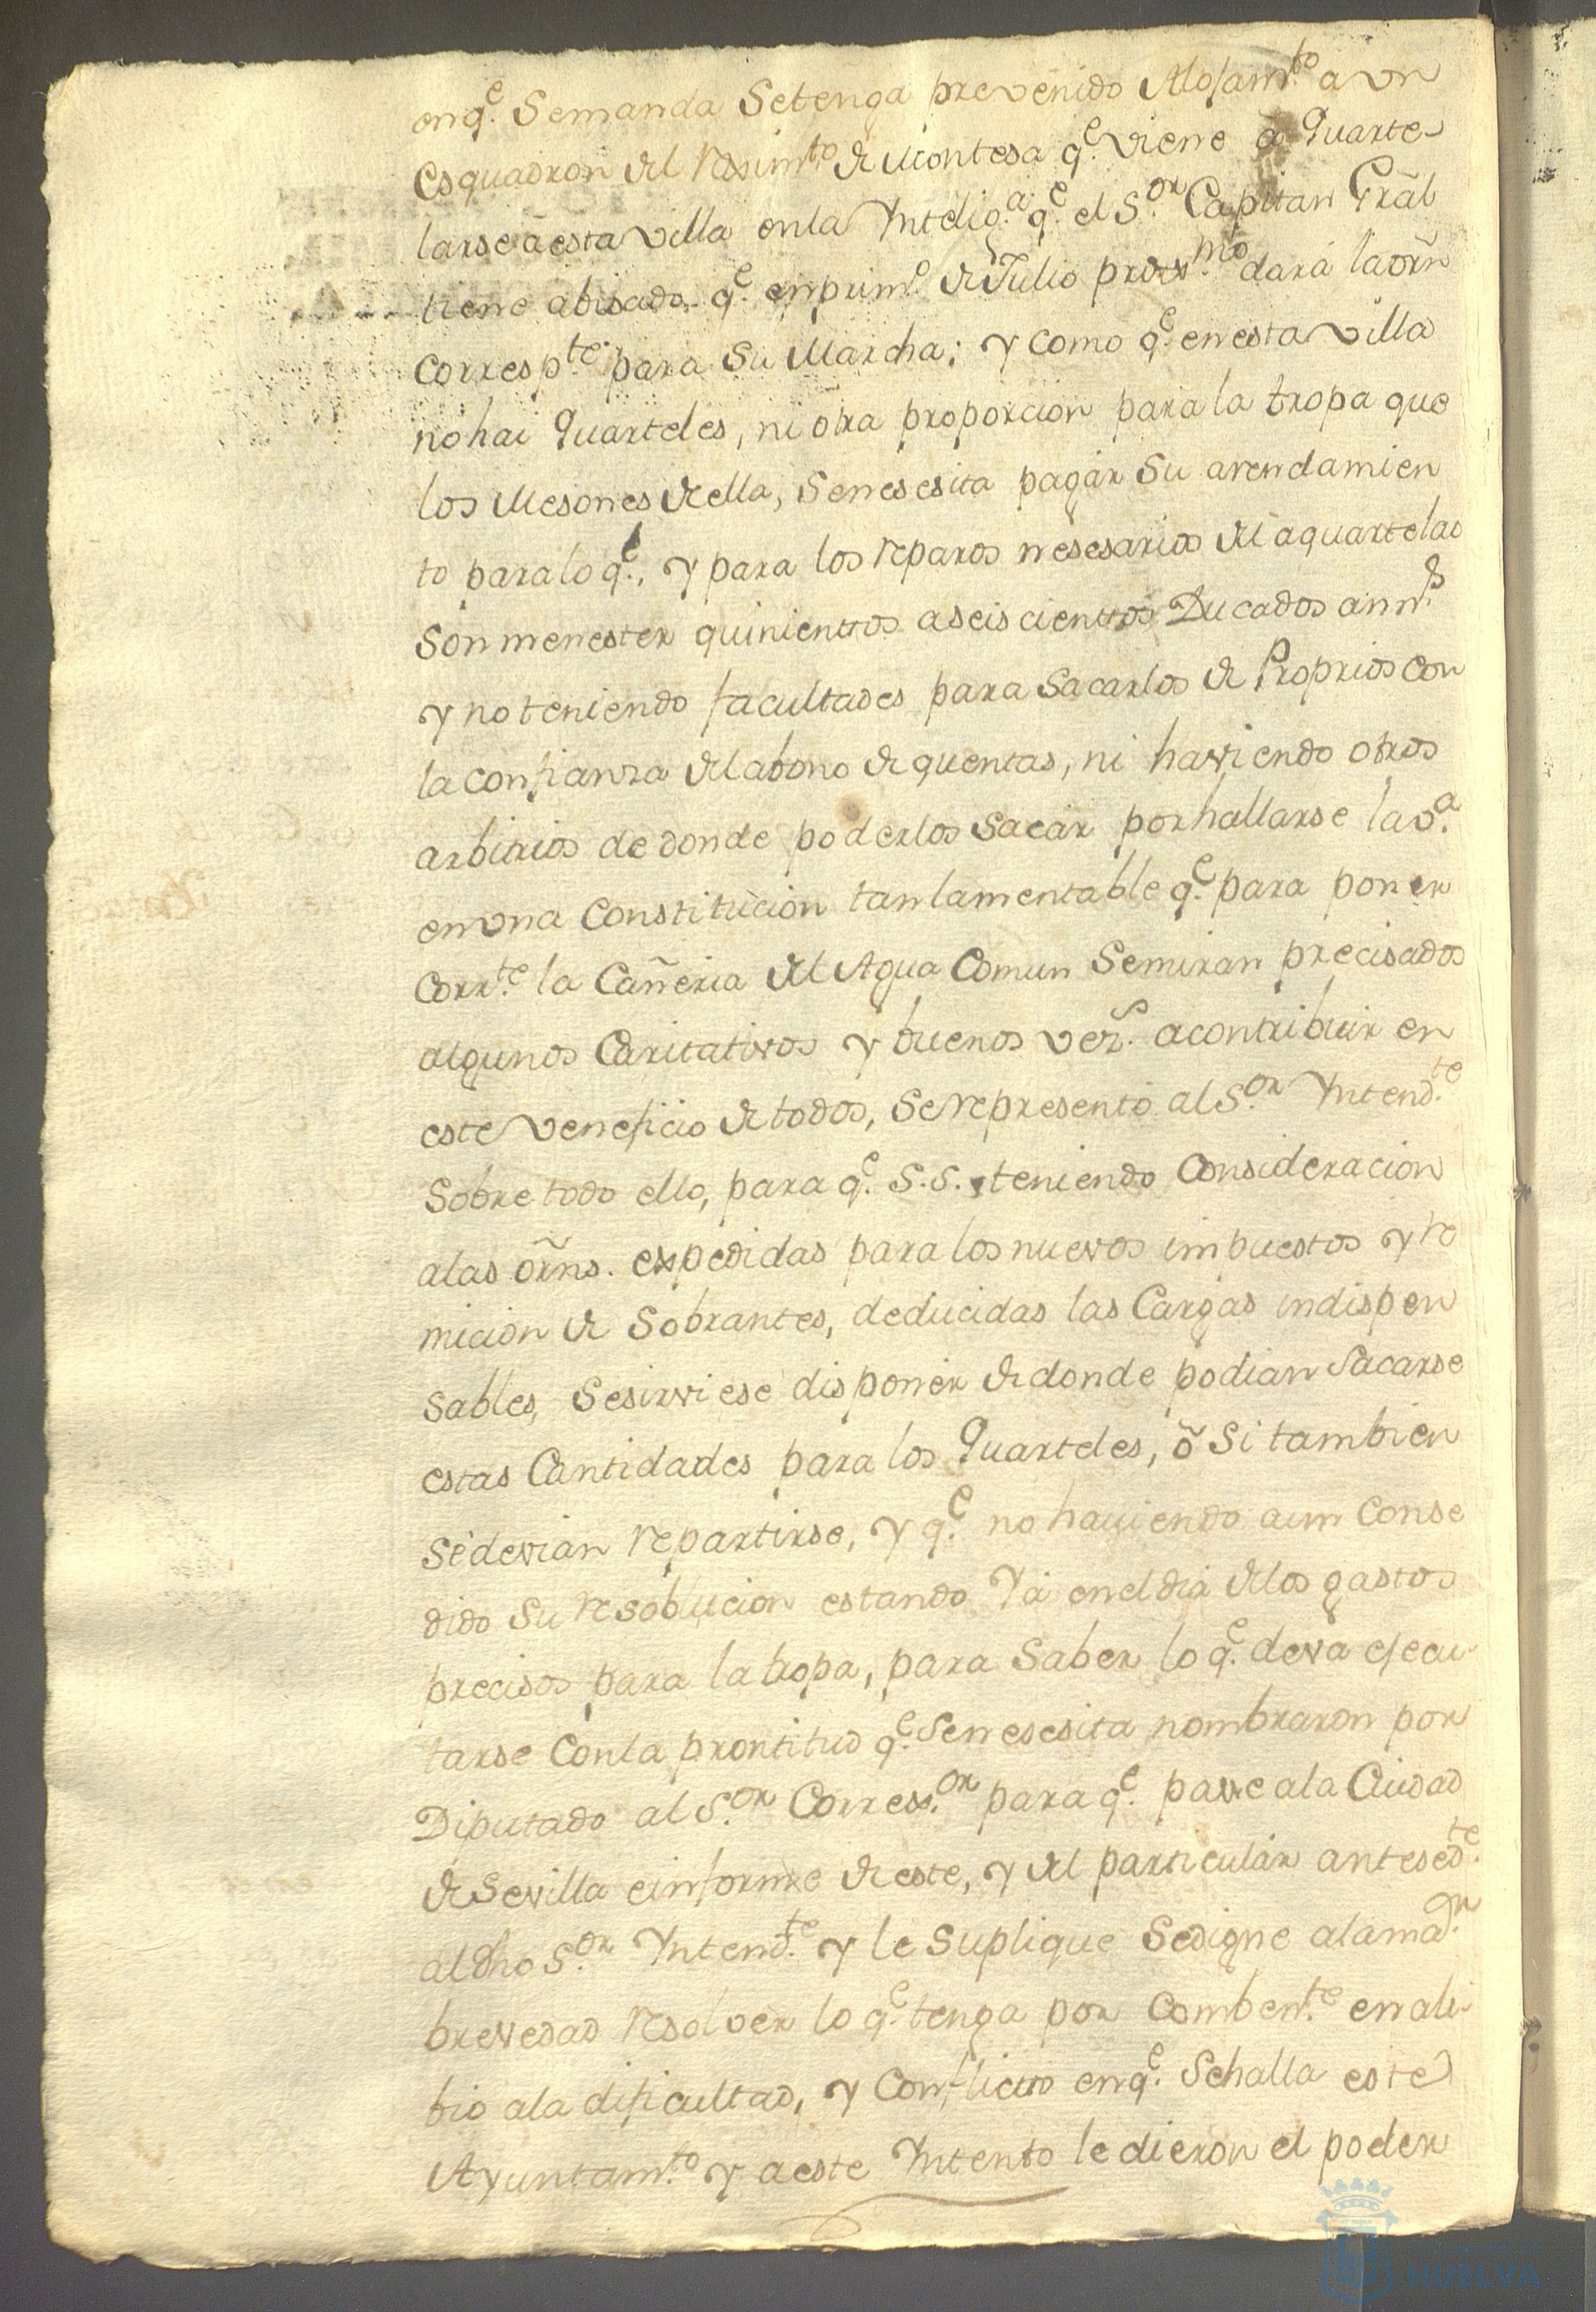 onq.e Semanda Setenga prevenido Alojam.to a vn
esquadron del Reximto de Montesa q.e viene a quarte
larse a esta villa enla Yntelig.a q.e el S.or Capitan Gräl
tiene abisado q.e en prim.o de Julio prox.mo dará la orñ
corresp.te para su Marcha; y como q.e en esta villa
no hai quarteles, ni otra proporcion para la tropa que
los Mesones de ella, se nesesita pagar su arendamien
to para lo q.e, y para los reparos nesesarios del aquartelao
son menester quinientos a seiscientos Ducados ann.s
y no teniendo facultades para sacarlos de Proprios con
la confianza del abono de quentas, ni haviendo otros
arbitrios de donde poderlos sacar por hallarse la v.a
en vna constitucion tan lamentable q.e para poner
corr.te la Cañeria del Agua Comun se miran precisados
algunos Caritativos y buenos vez.s a contribuir en
este veneficio de todos, se represento al S.or Yntend.te
Sobre todo ello, para q.e S.S. teniendo Consideracion
a las orñs. expedidas para los nuevos impuestos y re
micion de Sobrantes, deducidas las Cargas indispen
sables, se sirviese disponer de donde podian sacarse
estas Cantidades para los quarteles, ô si tambien
se devian repartirse, y q.e no haviendo aun Conse
dido su resoblucion estando Ya en el dia de los gastos
precisos para la tropa, para Saber lo q.e deva ejecu
tarse con la prontitud q.e se nesesita nombraron por
Diputado al S.or Correx.or para q.e pase a la Ciudad
de Sevilla e informe de este, y del particular antesed.te
al dho S.or Yntend.te y le suplique se digne a la ma.or
brevedad resolver lo q.e tenga por comben.te en ali
bio a la dificultad, y Conflicto en q.e se halla este
Ayuntam.to y a este Yntento le dieron el poder
HUELVA